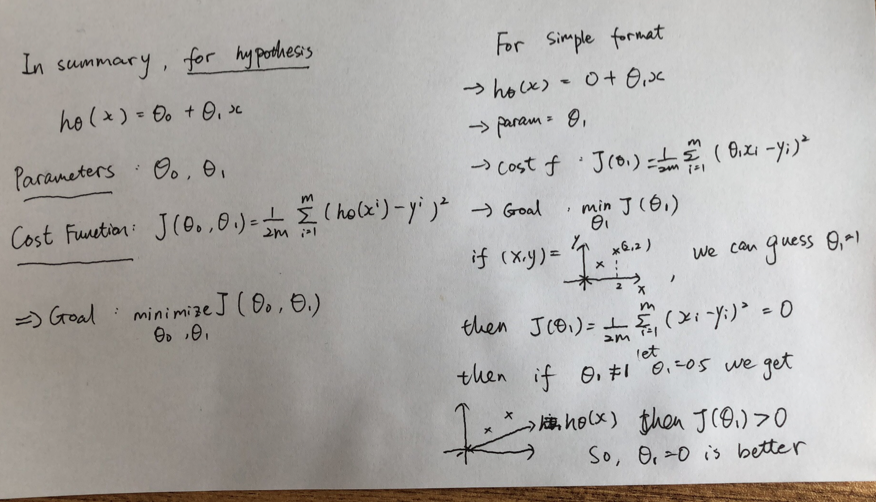 In summary, for hypothesis
hθ(x) = θ₀ + θ₁x
Parameters : θ₀, θ₁
Cost Function: J(θ₀, θ₁) = 1/2m Σᵢ₌₁ᵐ (hθ(xⁱ) - yⁱ)²
⇒ Goal : minimize J(θ₀, θ₁)
θ₀, θ₁
For simple format
→ hθ(x) = 0 + θ₁x
→ param = θ₁
→ cost f : J(θ₁) = 1/2m Σᵢ₌₁ᵐ (θ₁xᵢ - yᵢ)²
→ Goal . min J(θ₁)
θ₁
if (x,y) = y x (2,2) 2 x , we can guess θ₁=1
then J(θ₁) = 1/2m Σᵢ₌₁ᵐ (xᵢ - yᵢ)² = 0
then if θ₁ ≠ 1 let θ₁ = 0.5 we get
hθ(x) then J(θ₁) > 0
So, θ₁ = 0 is better